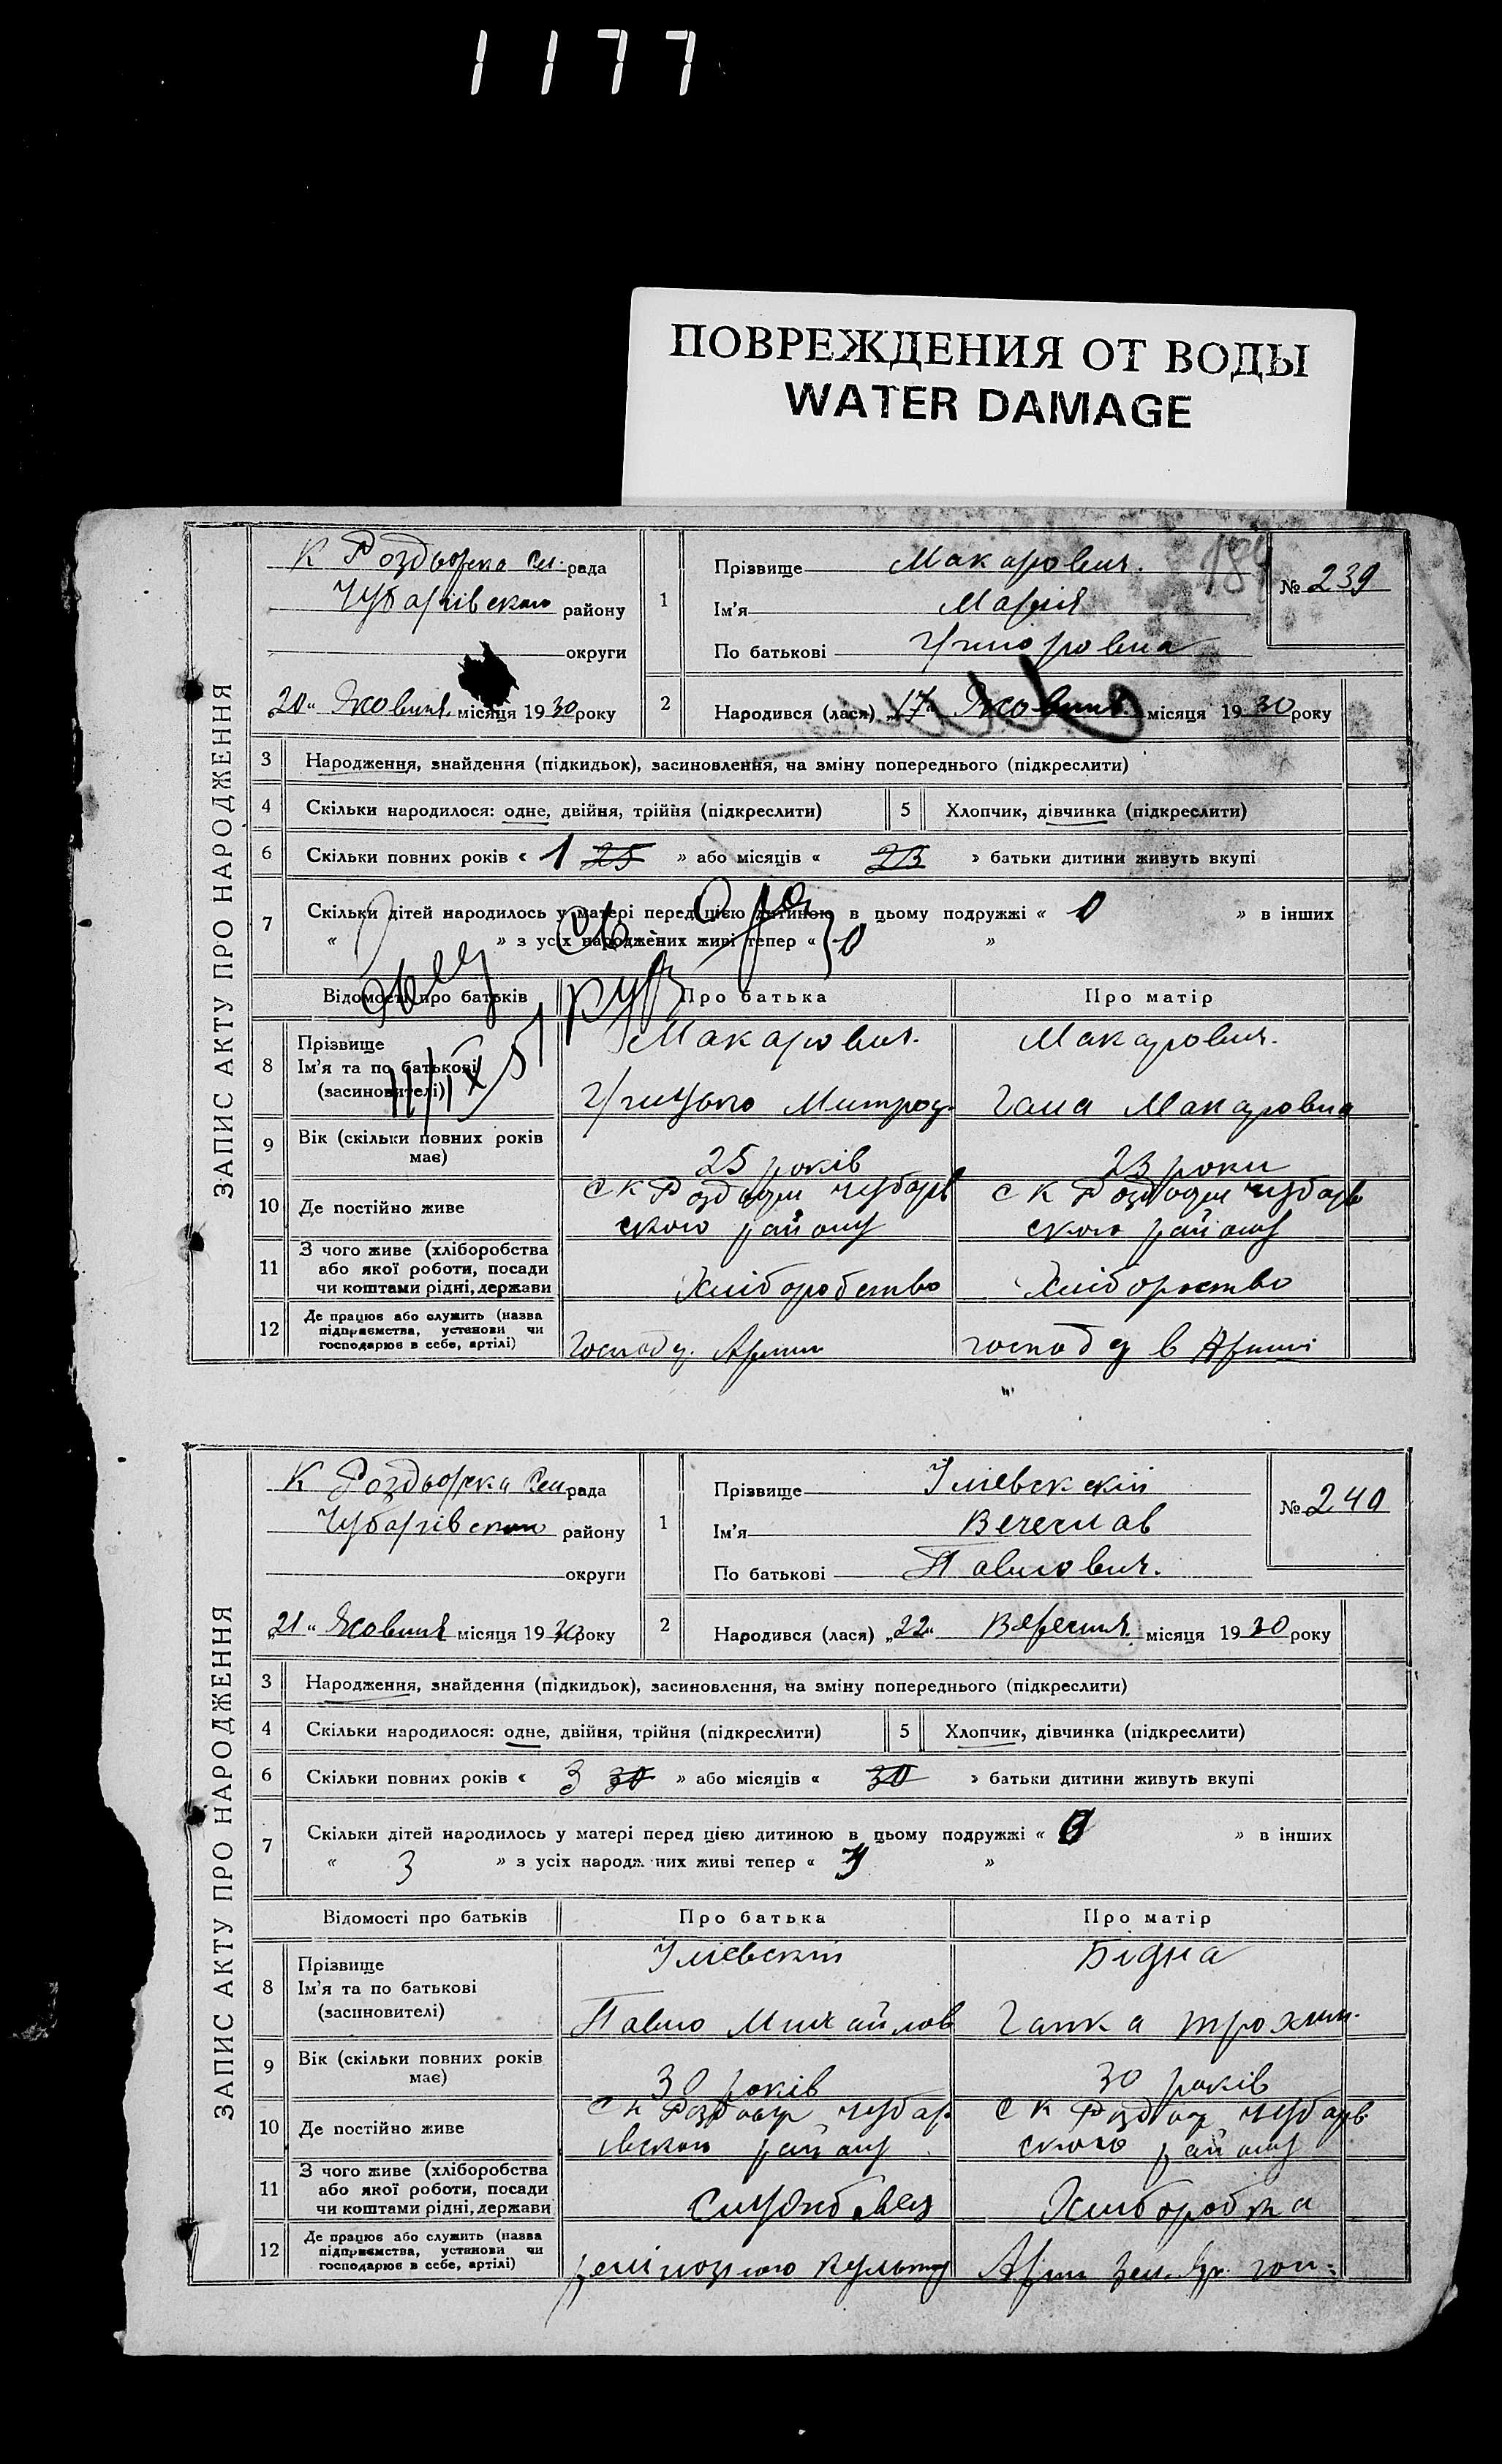 1177
ПОВРЕЖДЕНИЯ ОТ ВОДЫ
WATER DAMAGE
ЗАПИС АКТУ ПРО НАРОДЖЕННЯ
К Роздьорска Сел. рада
Чубарівського району
округи
„20“ Жовтня місяця 1930 року
1
Прізвище Макарович.
Ім'я Марія
По батькові Григоровна
184
№ 239
2
Народився (лася) „17“ Жовтня місяця 1930 року
3 Народження, знайдення (підкидьок), засиновлення, на зміну попереднього (підкреслити)
4 Скільки народилося: одне, двійня, трійня (підкреслити) 5 Хлопчик, дівчинка (підкреслити)
6 Скільки повних років « 1 25 » або місяців « 23 » батьки дитини живуть вкупі
7 Скільки дітей народилось у матері перед цією дитиною в цьому подружжі « 0 » в інших
« » з усіх народжених живі тепер « 0 »
Відомості про батьків Про батька Про матір
8 Прізвище Макарович. Макарович.
Ім'я та по батькові
(засиновителі) Грицько Митроф. Гана Макаровна
9 Вік (скільки повних років має) 25 років 23 роки
10 Де постійно живе с К Роздори Чубарів с К Роздори Чубарів
ского району ского району
11 З чого живе (хліборобства або якої роботи, посади чи коштами рідні, держави Хліборобство Хлібороство
12 Де працює або служить (назва підприємства, установи чи господарює в себе, артілі) господ у. Артіли господ у в Артілі
ЗАПИС АКТУ ПРО НАРОДЖЕННЯ
К Роздьорска Сел рада
Чубарівського району
округи
„21“ Жовтня місяця 1930 року
1
Прізвище Ілієвскский
Ім'я Вечеслав
По батькові Павлович.
№ 240
2
Народився (лася) „22“ Вересня місяця 1930 року
3 Народження, знайдення (підкидьок), засиновлення, на зміну попереднього (підкреслити)
4 Скільки народилося: одне, двійня, трійня (підкреслити) 5 Хлопчик, дівчинка (підкреслити)
6 Скільки повних років « 3 30 » або місяців « 30 » батьки дитини живуть вкупі
7 Скільки дітей народилось у матері перед цією дитиною в цьому подружжі « » в інших
« 3 » з усіх народж них живі тепер « »
Відомості про батьків Про батька Про матір
8 Прізвище Ілієвский Бідна
Ім'я та по батькові
(засиновителі) Павло Михайлов Ганка Трохим.
9 Вік (скільки повних років має) 30 років 30 років
10 Де постійно живе с К Роздор Чубар с К Роздор Чубарів
івского району ского району
11 З чого живе (хліборобства або якої роботи, посади чи коштами рідні, держави Службовец Хлиборобка
12 Де працює або служить (назва підприємства, установи чи господарює в себе, артілі) релігіозного культу Артіл